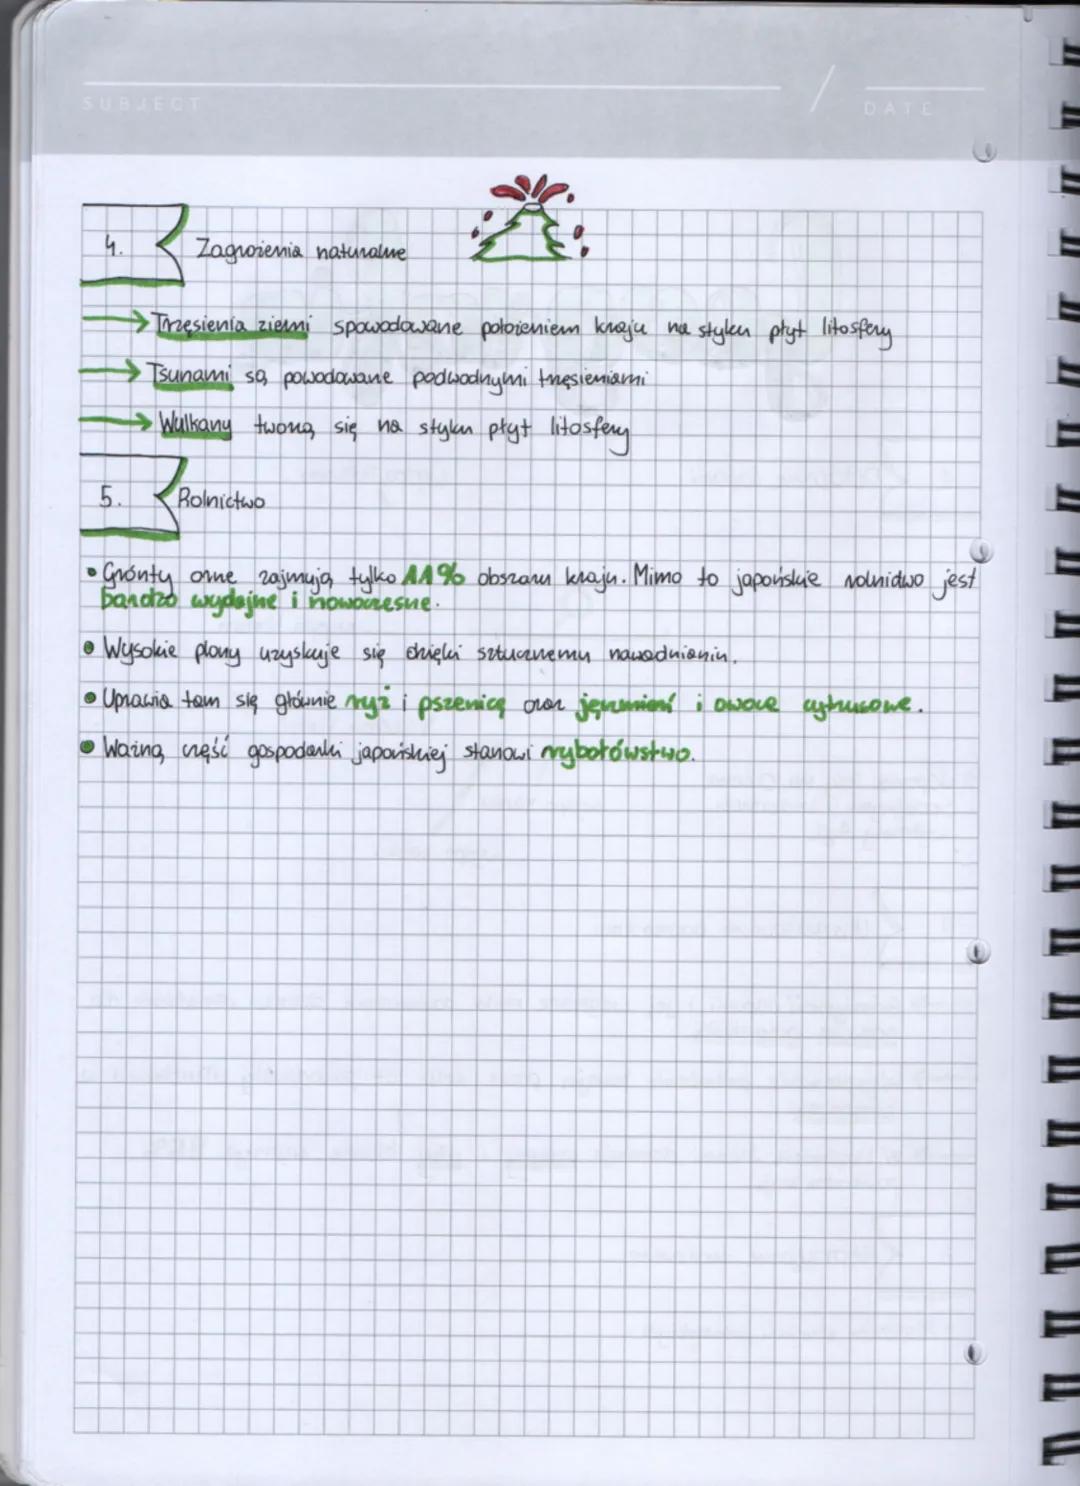 SUBJECT
DATE
4. Zagrożenia naturalne
Trzęsienia ziemi spowodowane położeniem kraju na styku płyt litosfery
Tsunami są powodowane podwodnymi trzęsieniami
Wulkany tworzą się na styku płyt litosfery
5. Rolnictwo
• Grónty orne zajmują tylko 11% obszaru kraju. Mimo to japońskie rolnidwo jest
bardzo wydajne i nowoczesne.
• Wysokie plony uzyskuje się dzięki sztucznemu nawodnianiu.
• Uprawia tam się głównie ryż i pszenicę oraz jęczmień i owoce cytrusowe.
• Ważną część gospodarki japońskiej stanowi rybołówstwo.